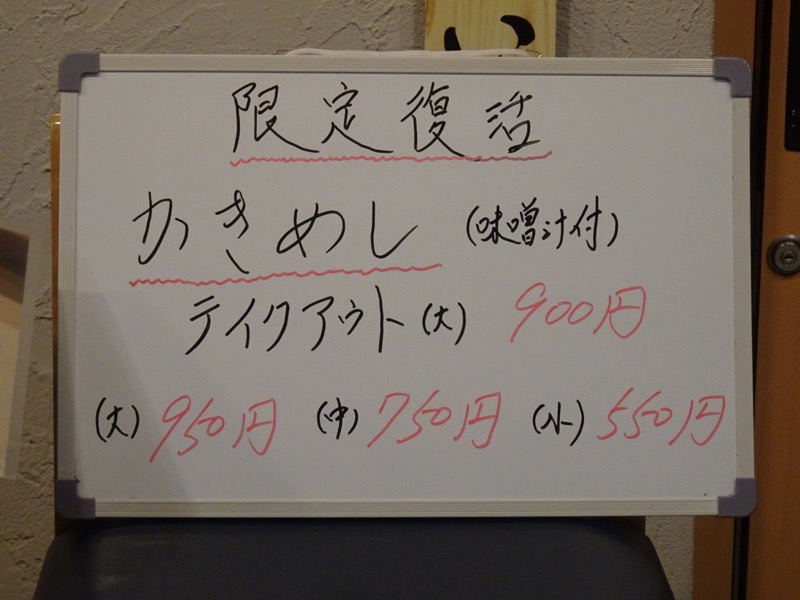 限定復活
かきめし (味噌汁付)
テイクアウト(大) 900円
(大) 950円 (中) 750円 (小) 550円